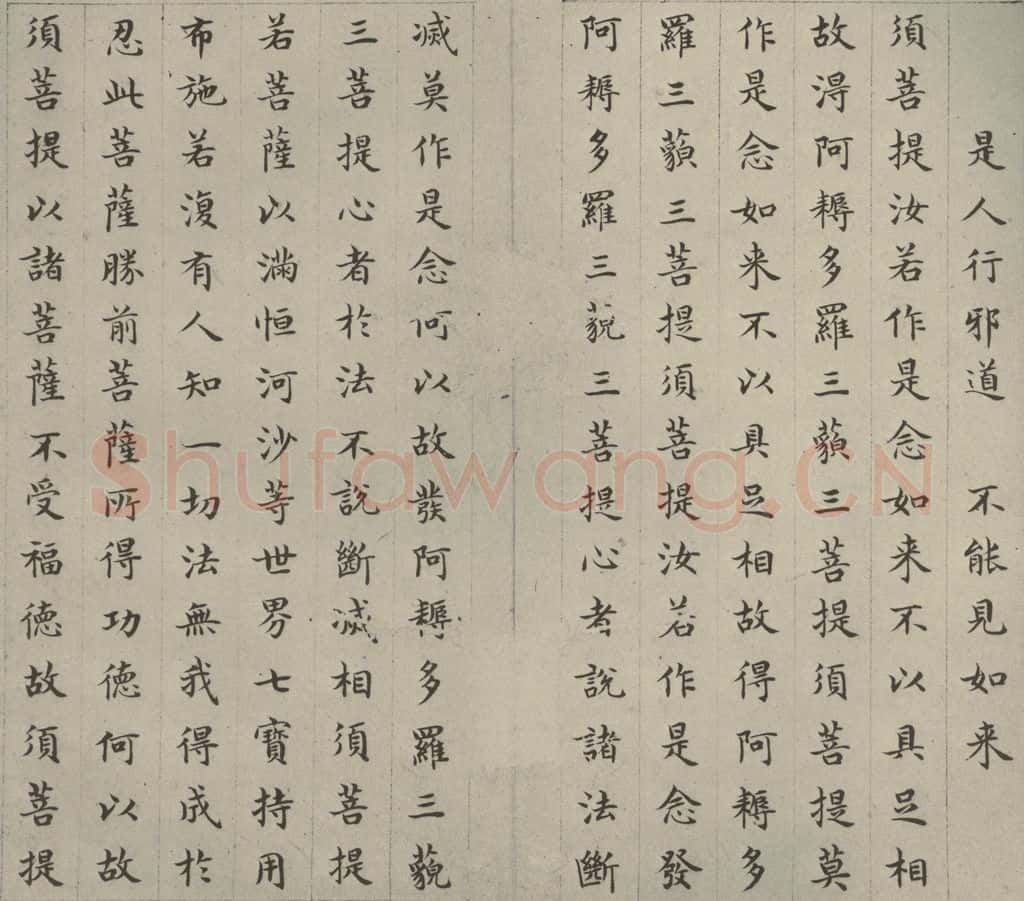 是人行邪道　不能見如来
須菩提汝若作是念如来不以具足相
故淂阿耨多羅三藐三菩提須菩提莫
作是念如来不以具足相故得阿耨多
羅三藐三菩提須菩提汝若作是念發
阿耨多羅三藐三菩提心者說諸法斷
滅莫作是念何以故發阿耨多羅三藐
三菩提心者於法不說斷滅相須菩提
若菩薩以滿恒河沙等世界七寶持用
布施若復有人知一切法無我得成於
忍此菩薩勝前菩薩所得功德何以故
須菩提以諸菩薩不受福德故須菩提
Shufawang.CN